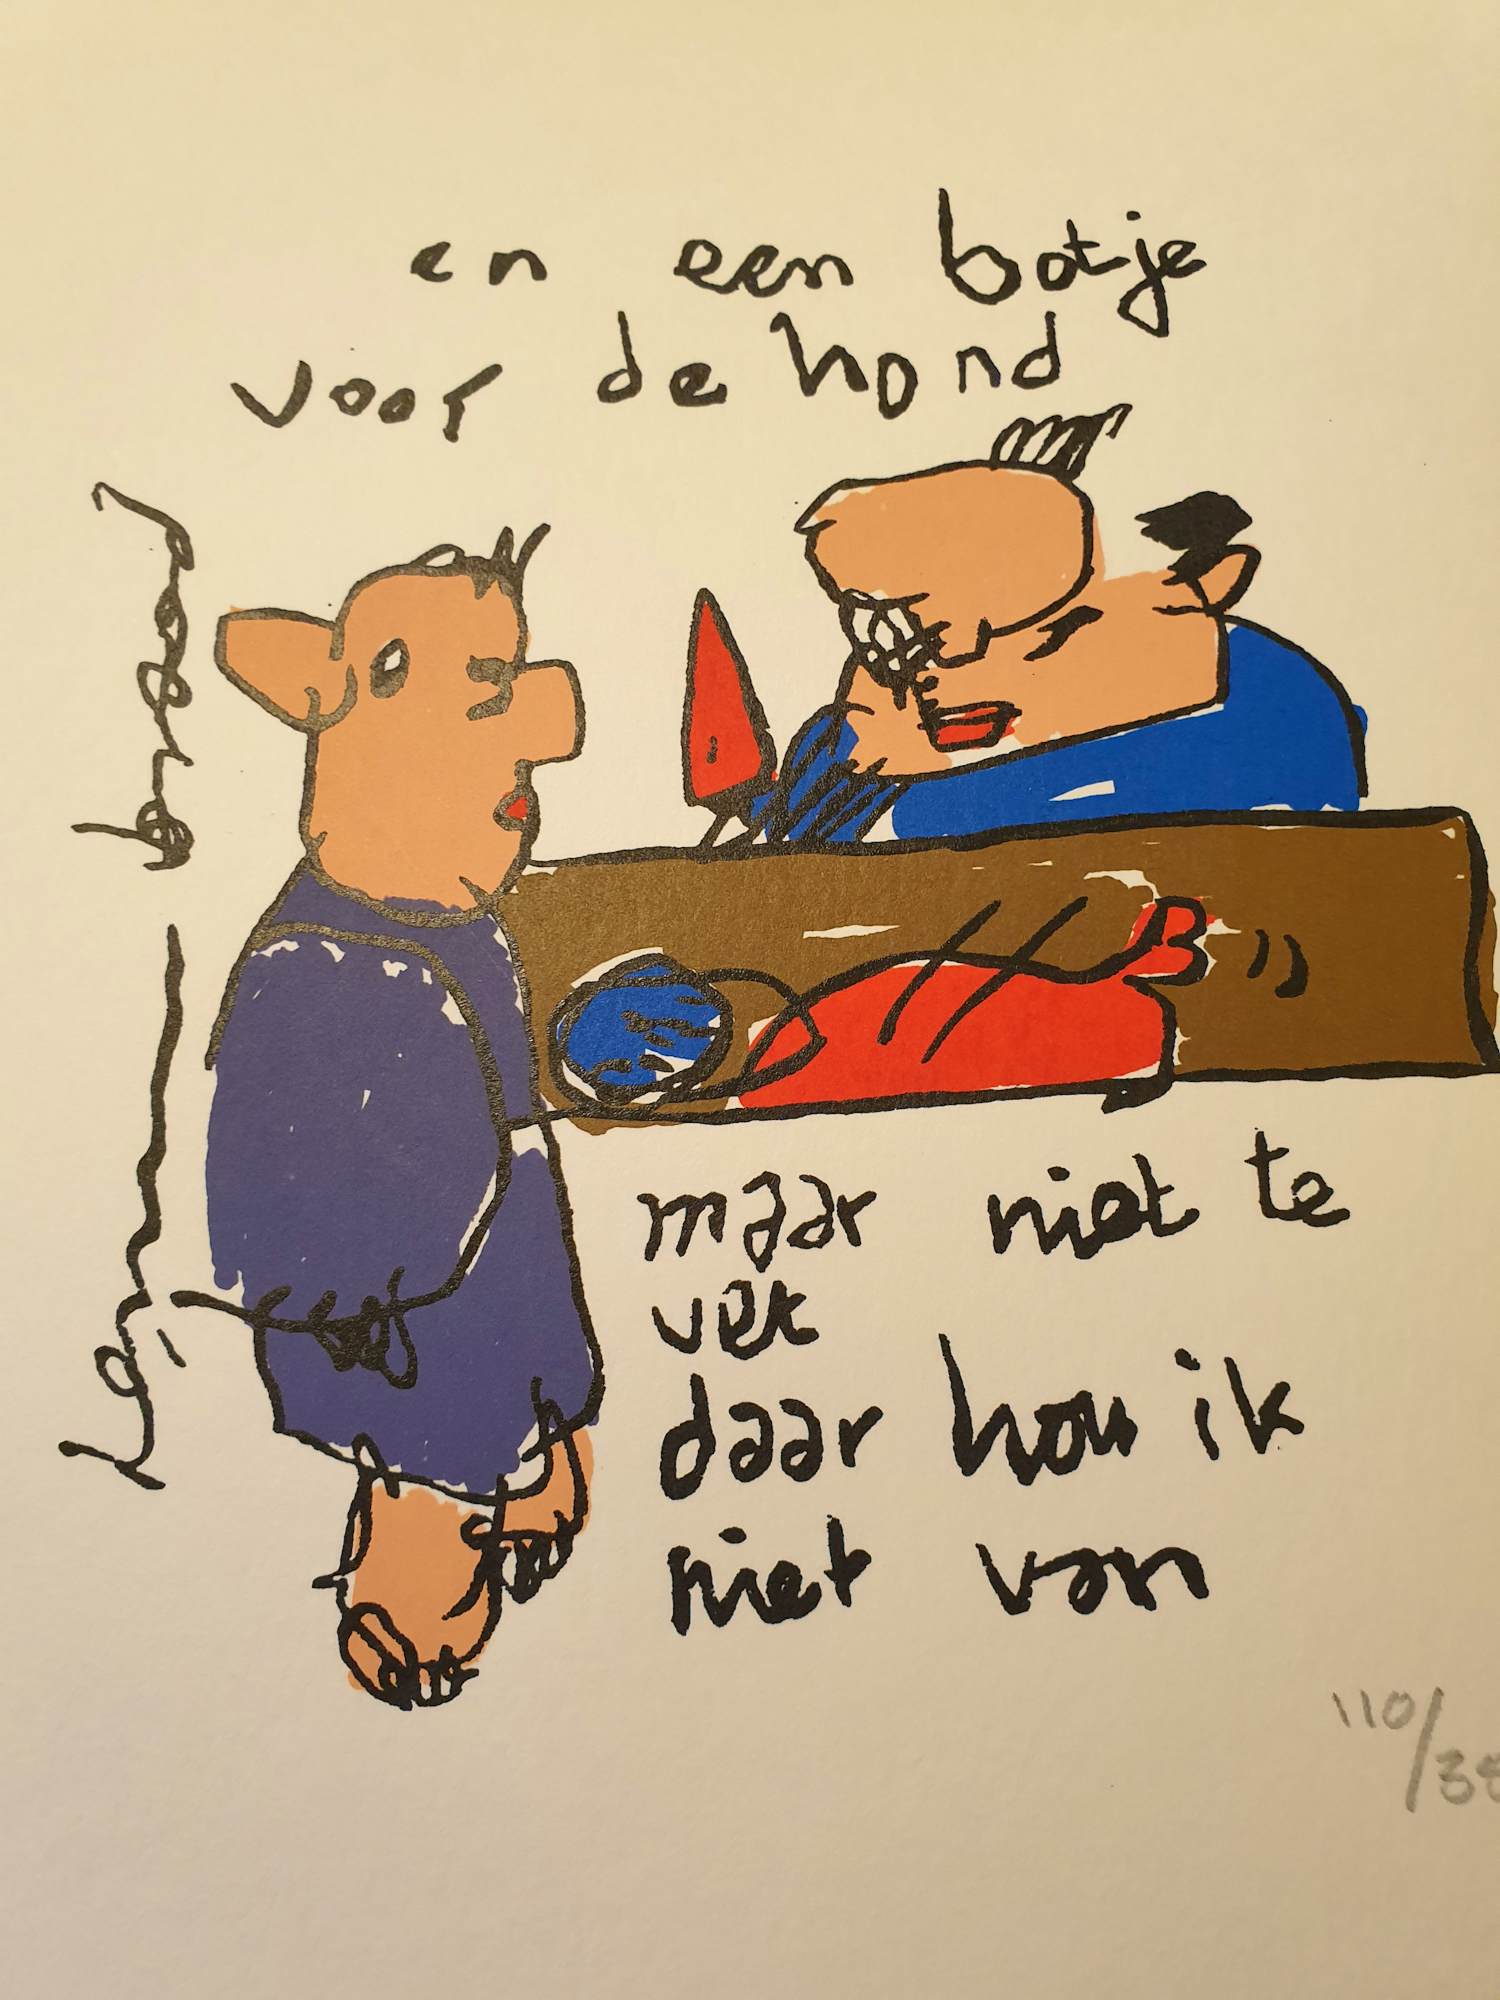 en een botje
voor de hond
maar niet te
vet
daar hou ik
niet van
herman brood
110/38